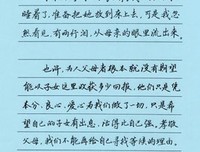 睡着了，准备把她放到床上去，可是我忽
然看见，有两行泪，从母亲的眼里流出来。
也许，为人父母者根本就没有期望
能从子女这里收获多少回报，他们是凭
本分、良心、爱心为我们做了一切，只是希
望自己的子女有出息，活得比自己强。孝敬
父母，我们不能再给自己寻找等候的理由。